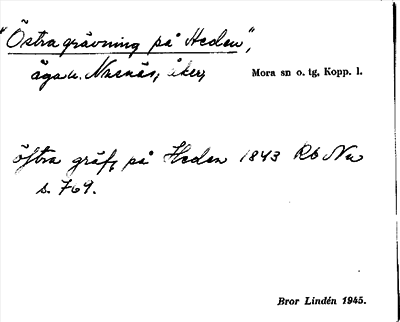 "Östra grävning på Heden",
ägau. Nusnäs, åker,
Mora sn o. tg, Kopp. l.
öftra gräf, på Heden 1843 Rb Nu
s. 769.
Bror Lindén 1945.